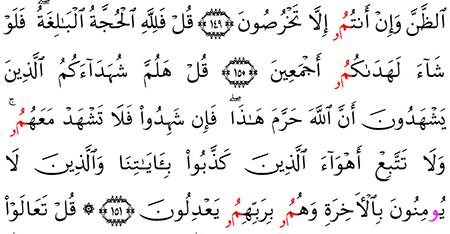 اَ۬لظَّنَّ وَإِنْ أَنتُمُۥ إِلَّا تَخْرُصُونَ ١٤٩ قُلْ فَلِلَّهِ اِ۬لْحُجَّةُ اُ۬لْبَٰلِغَةُۖ فَلَوْ
شَآءَ لَهَدَىٰكُمُۥ أَجْمَعِينَ ١٥٠ قُلْ هَلُمَّ شُهَدَآءَكُمُ اُ۬لذِينَ
يَشْهَدُونَ أَنَّ اَ۬للَّهَ حَرَّمَ هَٰذَاۖ فَإِن شَهِدُواْ فَلَا تَشْهَدْ مَعَهُمُۥۚ
وَلَا تَتَّبِعْ أَهْوَآءَ اَ۬لذِينَ كَذَّبُواْ بِـَٔايَٰتِنَا وَالذِينَ لَا
يُومِنُونَ بِالْأٓخِرَةِ وَهُمُۥ بِرَبِّهِمُۥ يَعْدِلُونَ ١٥١ ۞ قُلْ تَعَالَوَاْ